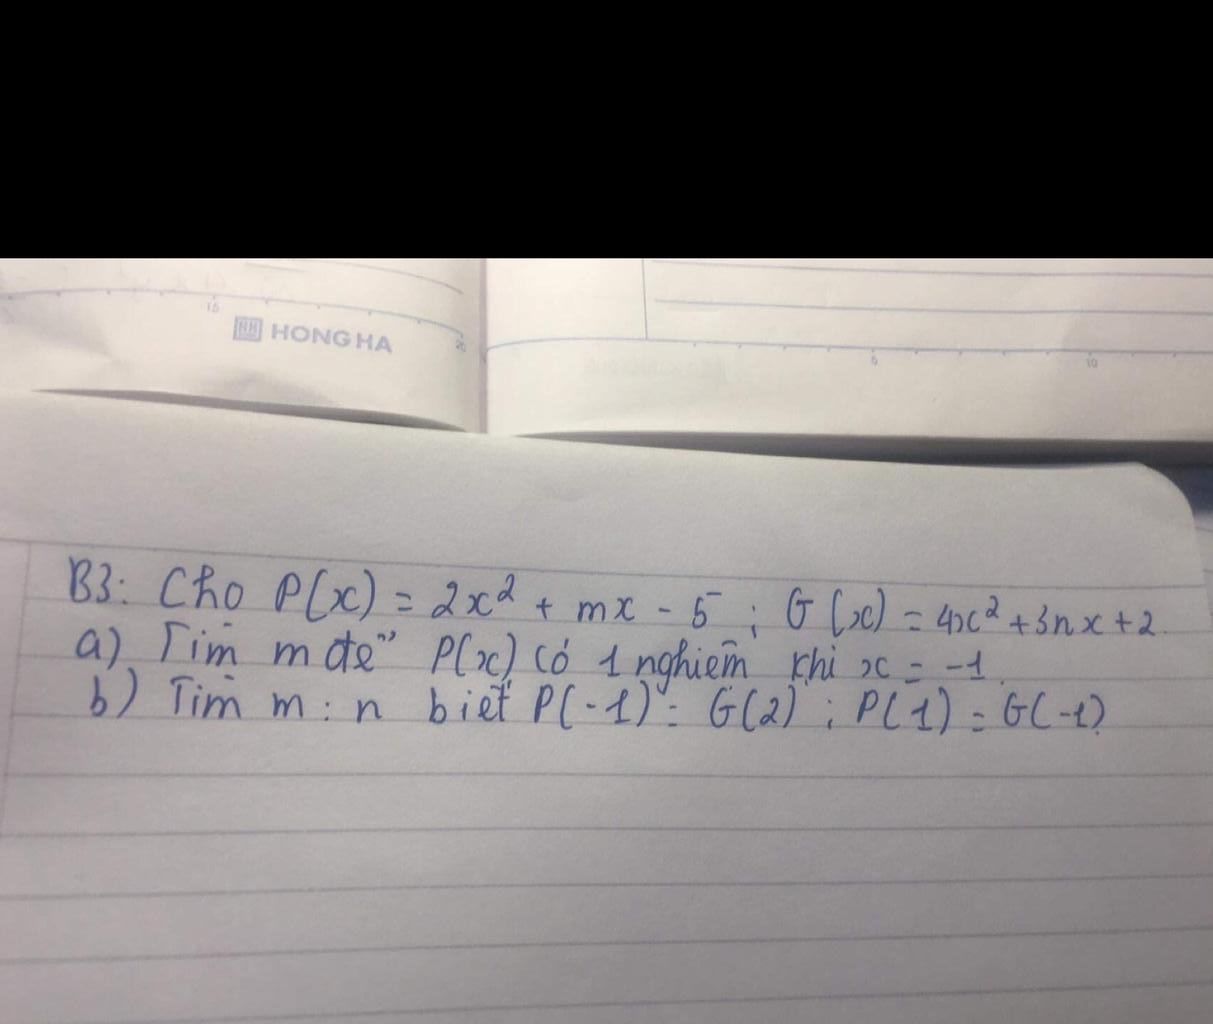 15
HONG HA
20
5
10
B3: Cho P(x) = 2x² + mx - 5 ; G(x) = 4x² + 3nx + 2.
a) Tìm m để P(x) có 1 nghiệm khi x = -1.
b) Tìm m ; n biết P(-1) = G(2) ; P(1) = G(-1)